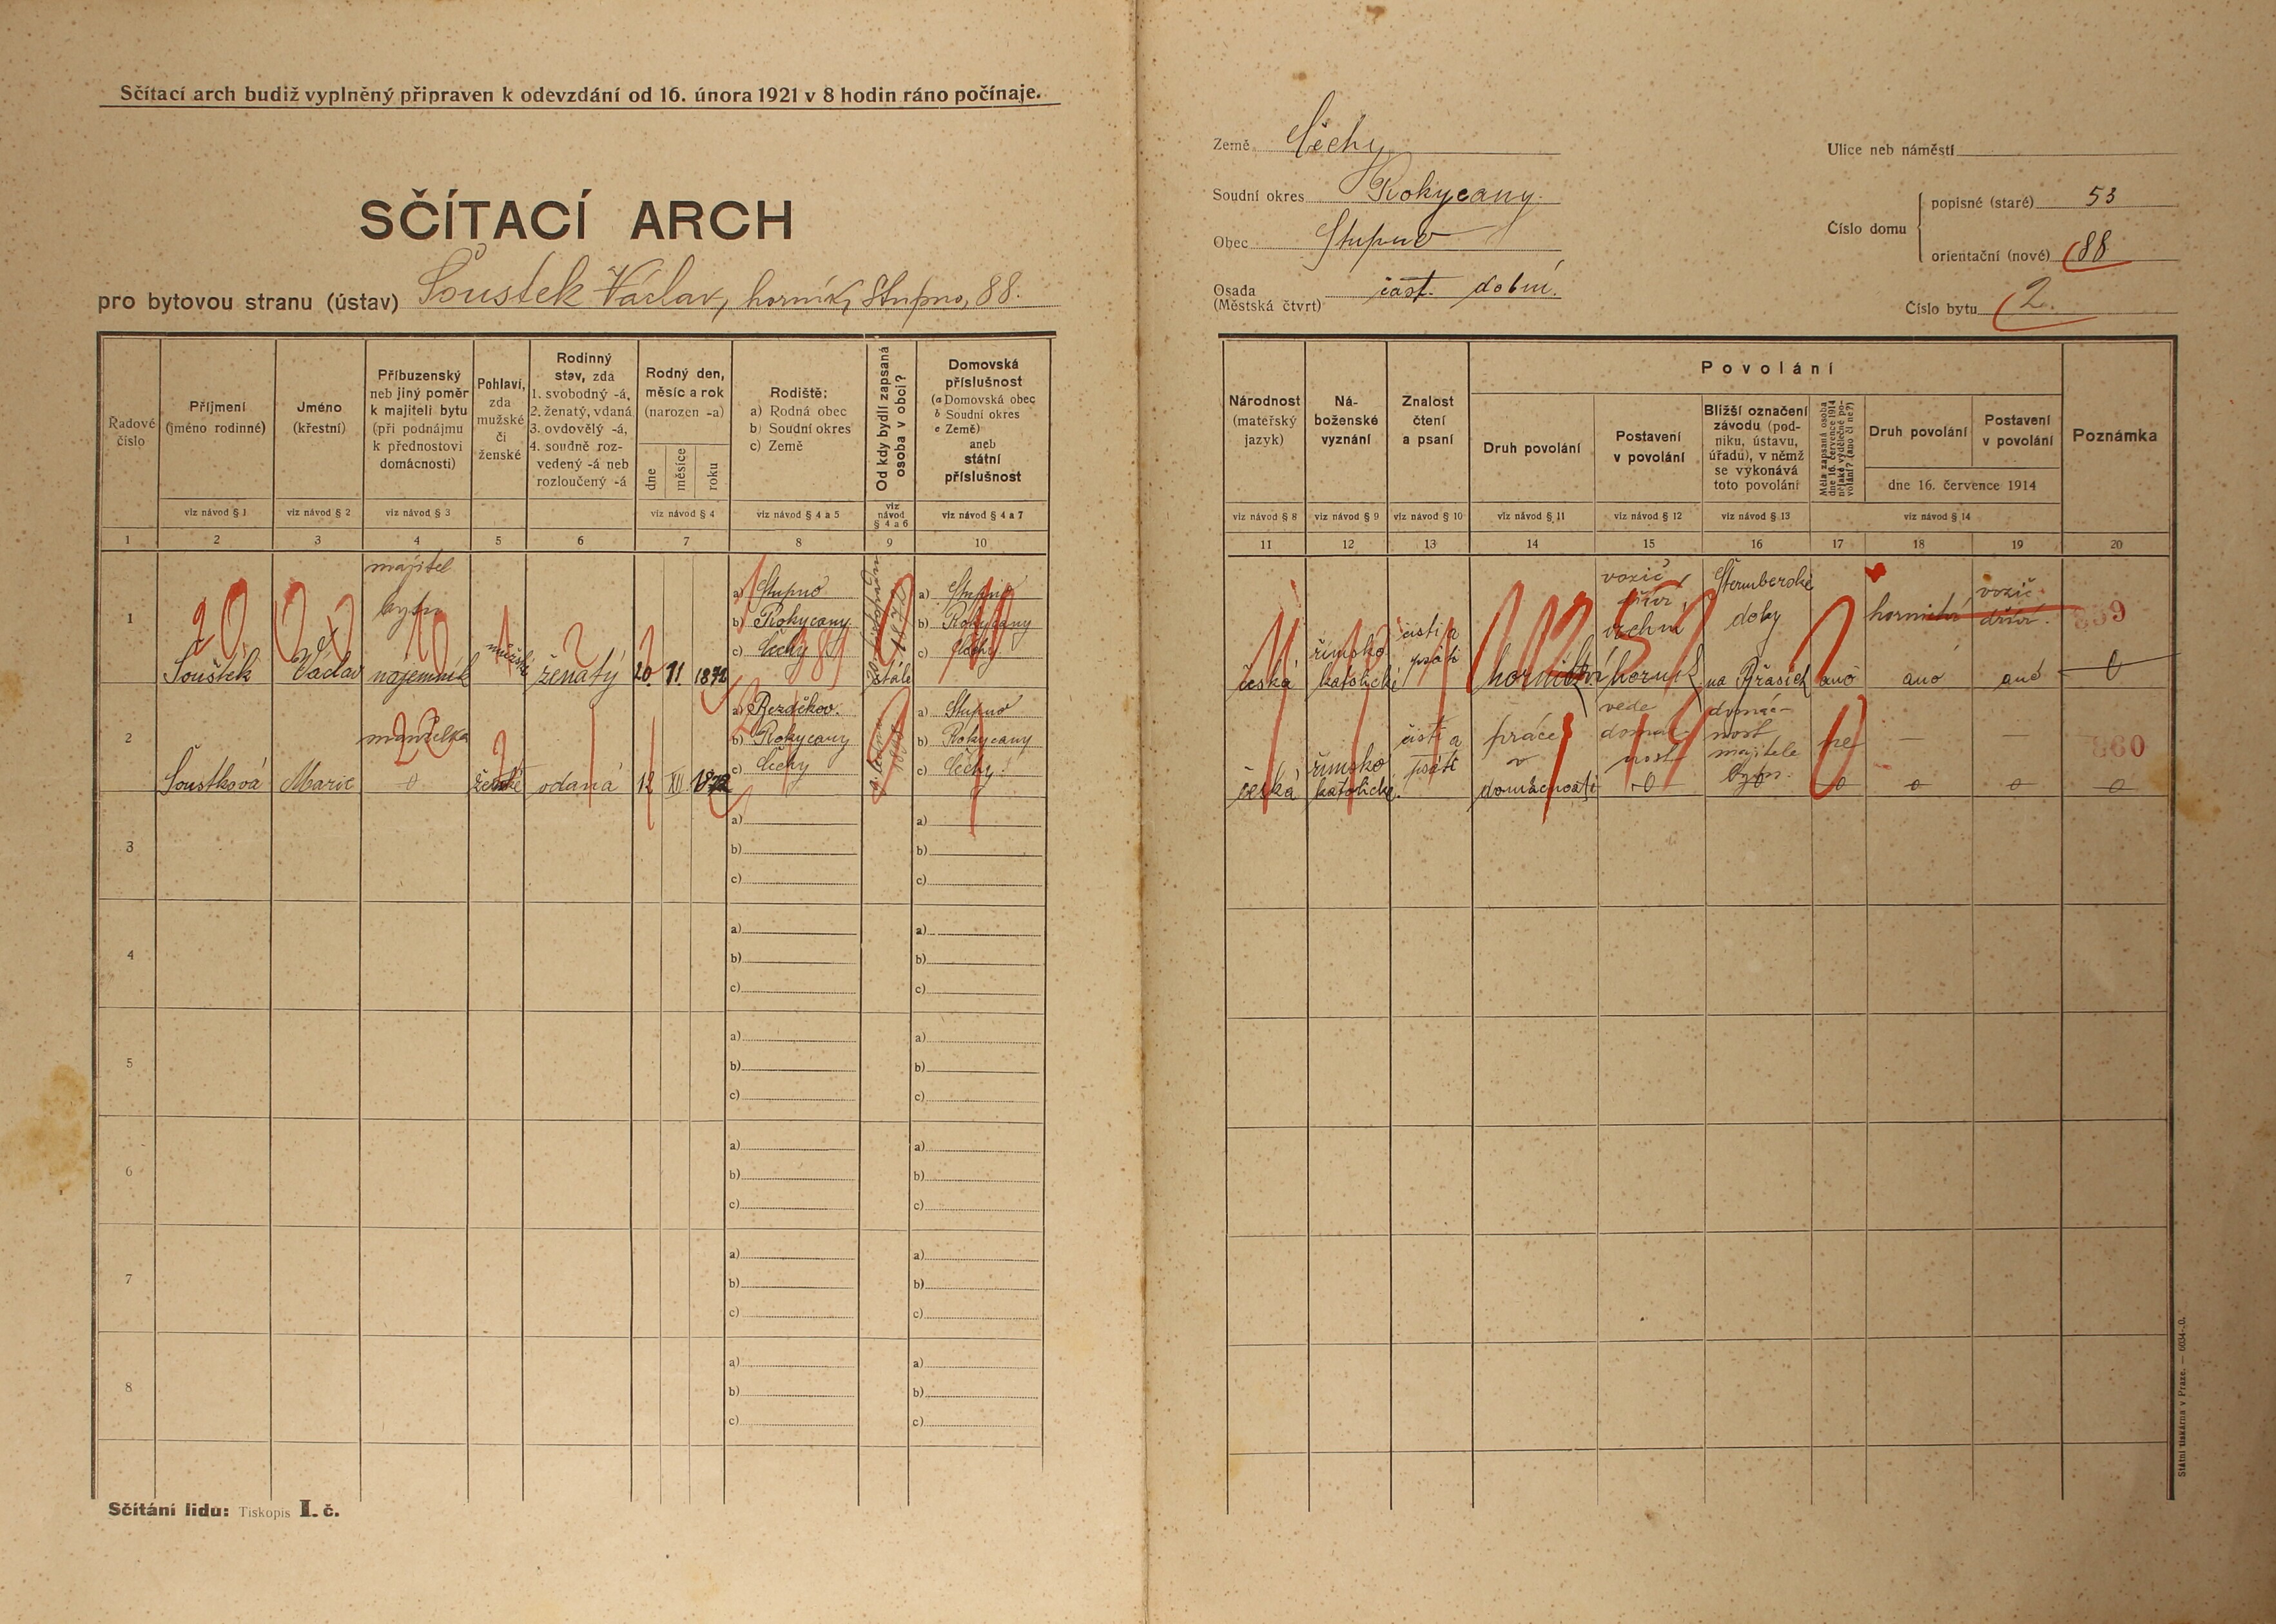 Sčítací arch budiž vyplněný připraven k odevzdání od 16. února 1921 v 8 hodin ráno počínaje.
SČÍTACÍ ARCH
pro bytovou stranu (ústav) Šoustek Václav, horník, Stupno, 88.
Země Čechy
Soudní okres Rokycany.
Obec Stupno
Osada
(Městská čtvrť)
část. dolní.
Ulice neb náměstí
Číslo domu
popisné (staré) 53
orientační (nové) 88
Číslo bytu 2.
Řadové
číslo
Příjmení
(jméno rodinné)
Jméno
(křestní)
Příbuzenský
neb jiný poměr
k majiteli bytu
(při podnájmu
k přednostovi
domácnosti)
Pohlaví,
zda
mužské
či
ženské
Rodinný
stav, zda
1. svobodný -á,
2. ženatý, vdaná
3. ovdovělý -á,
4. soudně roz-
vedený -á neb
rozloučený -á
Rodný den,
měsíc a rok
(narozen -a)
dne
měsíce
roku
Rodiště:
a) Rodná obec
b) Soudní okres
c) Země
Od kdy bydlí zapsaná
osoba v obci?
Domovská
příslušnost
(a Domovská obec
b Soudní okres
c Země)
aneb
státní
příslušnost
viz návod § 1
viz návod § 2
viz návod § 3
viz návod § 4
viz návod § 4 a 5
viz
návod
§ 4 a 6
viz návod § 4 a 7
1 2 3 4 5 6 7 8 9 10
Národnost
(mateřský
jazyk)
Ná-
boženské
vyznání
Znalost
čtení
a psaní
Povolání
Druh povolání
Postavení
v povolání
Bližší označení
závodu (pod-
niku, ústavu,
úřadu), v němž
se vykonává
toto povolání
Měla zapsaná osoba
dne 16. července 1914
nějaké výdělečné po-
volání? (ano či ne?)
Druh povolání
Postavení
v povolání
dne 16. července 1914
Poznámka
viz návod § 8
viz návod § 9
viz návod § 10
viz návod § 11
viz návod § 12
viz návod § 13
viz návod § 14
11 12 13 14 15 16 17 18 19 20
1
Šoustek
Václav
majitel
bytu
nájemník
mužské
ženatý
20. 11. 1872
a) Stupno
b) Rokycany
c) Čechy
stále
a) Stupno
b) Rokycany
c) Čechy
česká
římsko
katolické
čísti a
psáti
hornictví
vozič
dříví
horník
Šternberské
doly
na Břasích
ano
hornictví
ano
vozič
dříví.
ano
859
0
2
Šoustková
Marie
manželka
0
ženské
vdaná
12 XII 1872
a) Bezděkov.
b) Rokycany
c) Čechy
a) Stupno
b) Rokycany
c) Čechy.
česká
římsko
katolické.
čísti a
psáti
práce
v
domácnosti
vede
domác-
nost
0
domác-
nost
majitele
bytu.
ne
0
—
0
—
0
860
0
3
a)
b)
c)
a)
b)
c)
4
a)
b)
c)
a)
b)
c)
5
a)
b)
c)
a)
b)
c)
6
a)
b)
c)
a)
b)
c)
7
a)
b)
c)
a)
b)
c)
8
a)
b)
c)
a)
b)
c)
Sčítání lidu: Tiskopis I. č.
Státní tiskárna v Praze. — 6034-20.